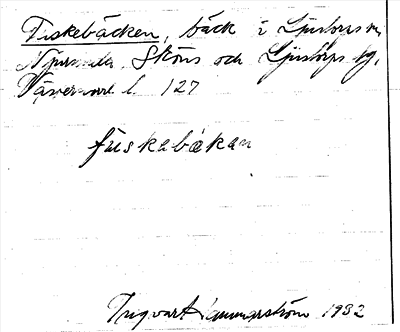 Fiskebäcken, bäck i Ljustorps sn,
Njurunda, Sköns och Ljustorps tg,
Västernorrl. l. 127
fiskabäkan
Ingvart Hammarström 1932